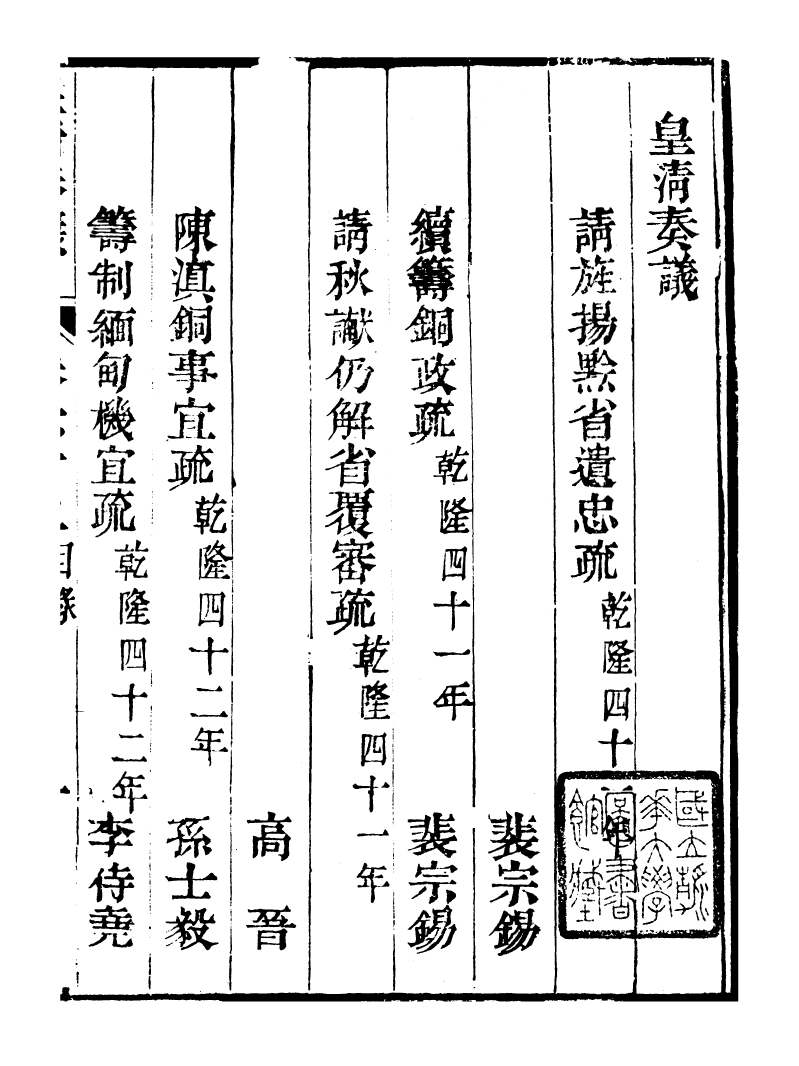 皇清奏議
請旌揚黔省遺忠疏 乾隆四十
裴宗錫
續籌銅政疏 乾隆四十一年 裴宗錫
請秋讞仍解省覆審疏 乾隆四十一年
高晉
陳滇銅事宜疏 乾隆四十二年 孫士毅
籌制緬甸機宜疏 乾隆四十二年 李侍堯
目錄 一
國立清華大學圖書館藏